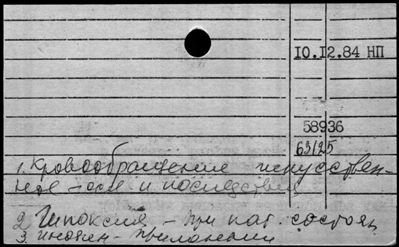 10.12.84 НП
58936
63125
1. Кровообращение искусствен-
ное - осл и последствия
2 Гипоксия - при пат. состоян
3. - приложении